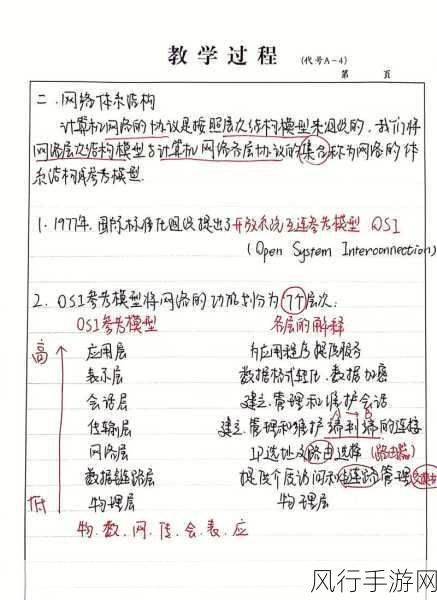 教学过程 (代号A-4)
第 页
二.网络体系结构
计算机网络的协议是按照层次结构模型来组织的,我们将
网络层次结构模型与计算机网络各层协议的集合称为网络的体
系结构或参考模型.
1.1977年,国际标准化组织提出了开放系统互连参考模型 OSI
(Open System Interconnection)
2.OSI参考模型将网络的功能划分为7个层次:
OSI参考模型 各层的解释
高 应用层 为应用程序提供服务
表示层 数据格式转化、数据加密
会话层 建立、管理和维护会话
A → B
传输层 建立、管理和维护端到端的连接
网络层 IP选址及路由选择 (路由器)
数据链路层 提供介质访问和链路管理
低 物理层 物理层
物、数、网、传、会、表、应
风行手游网